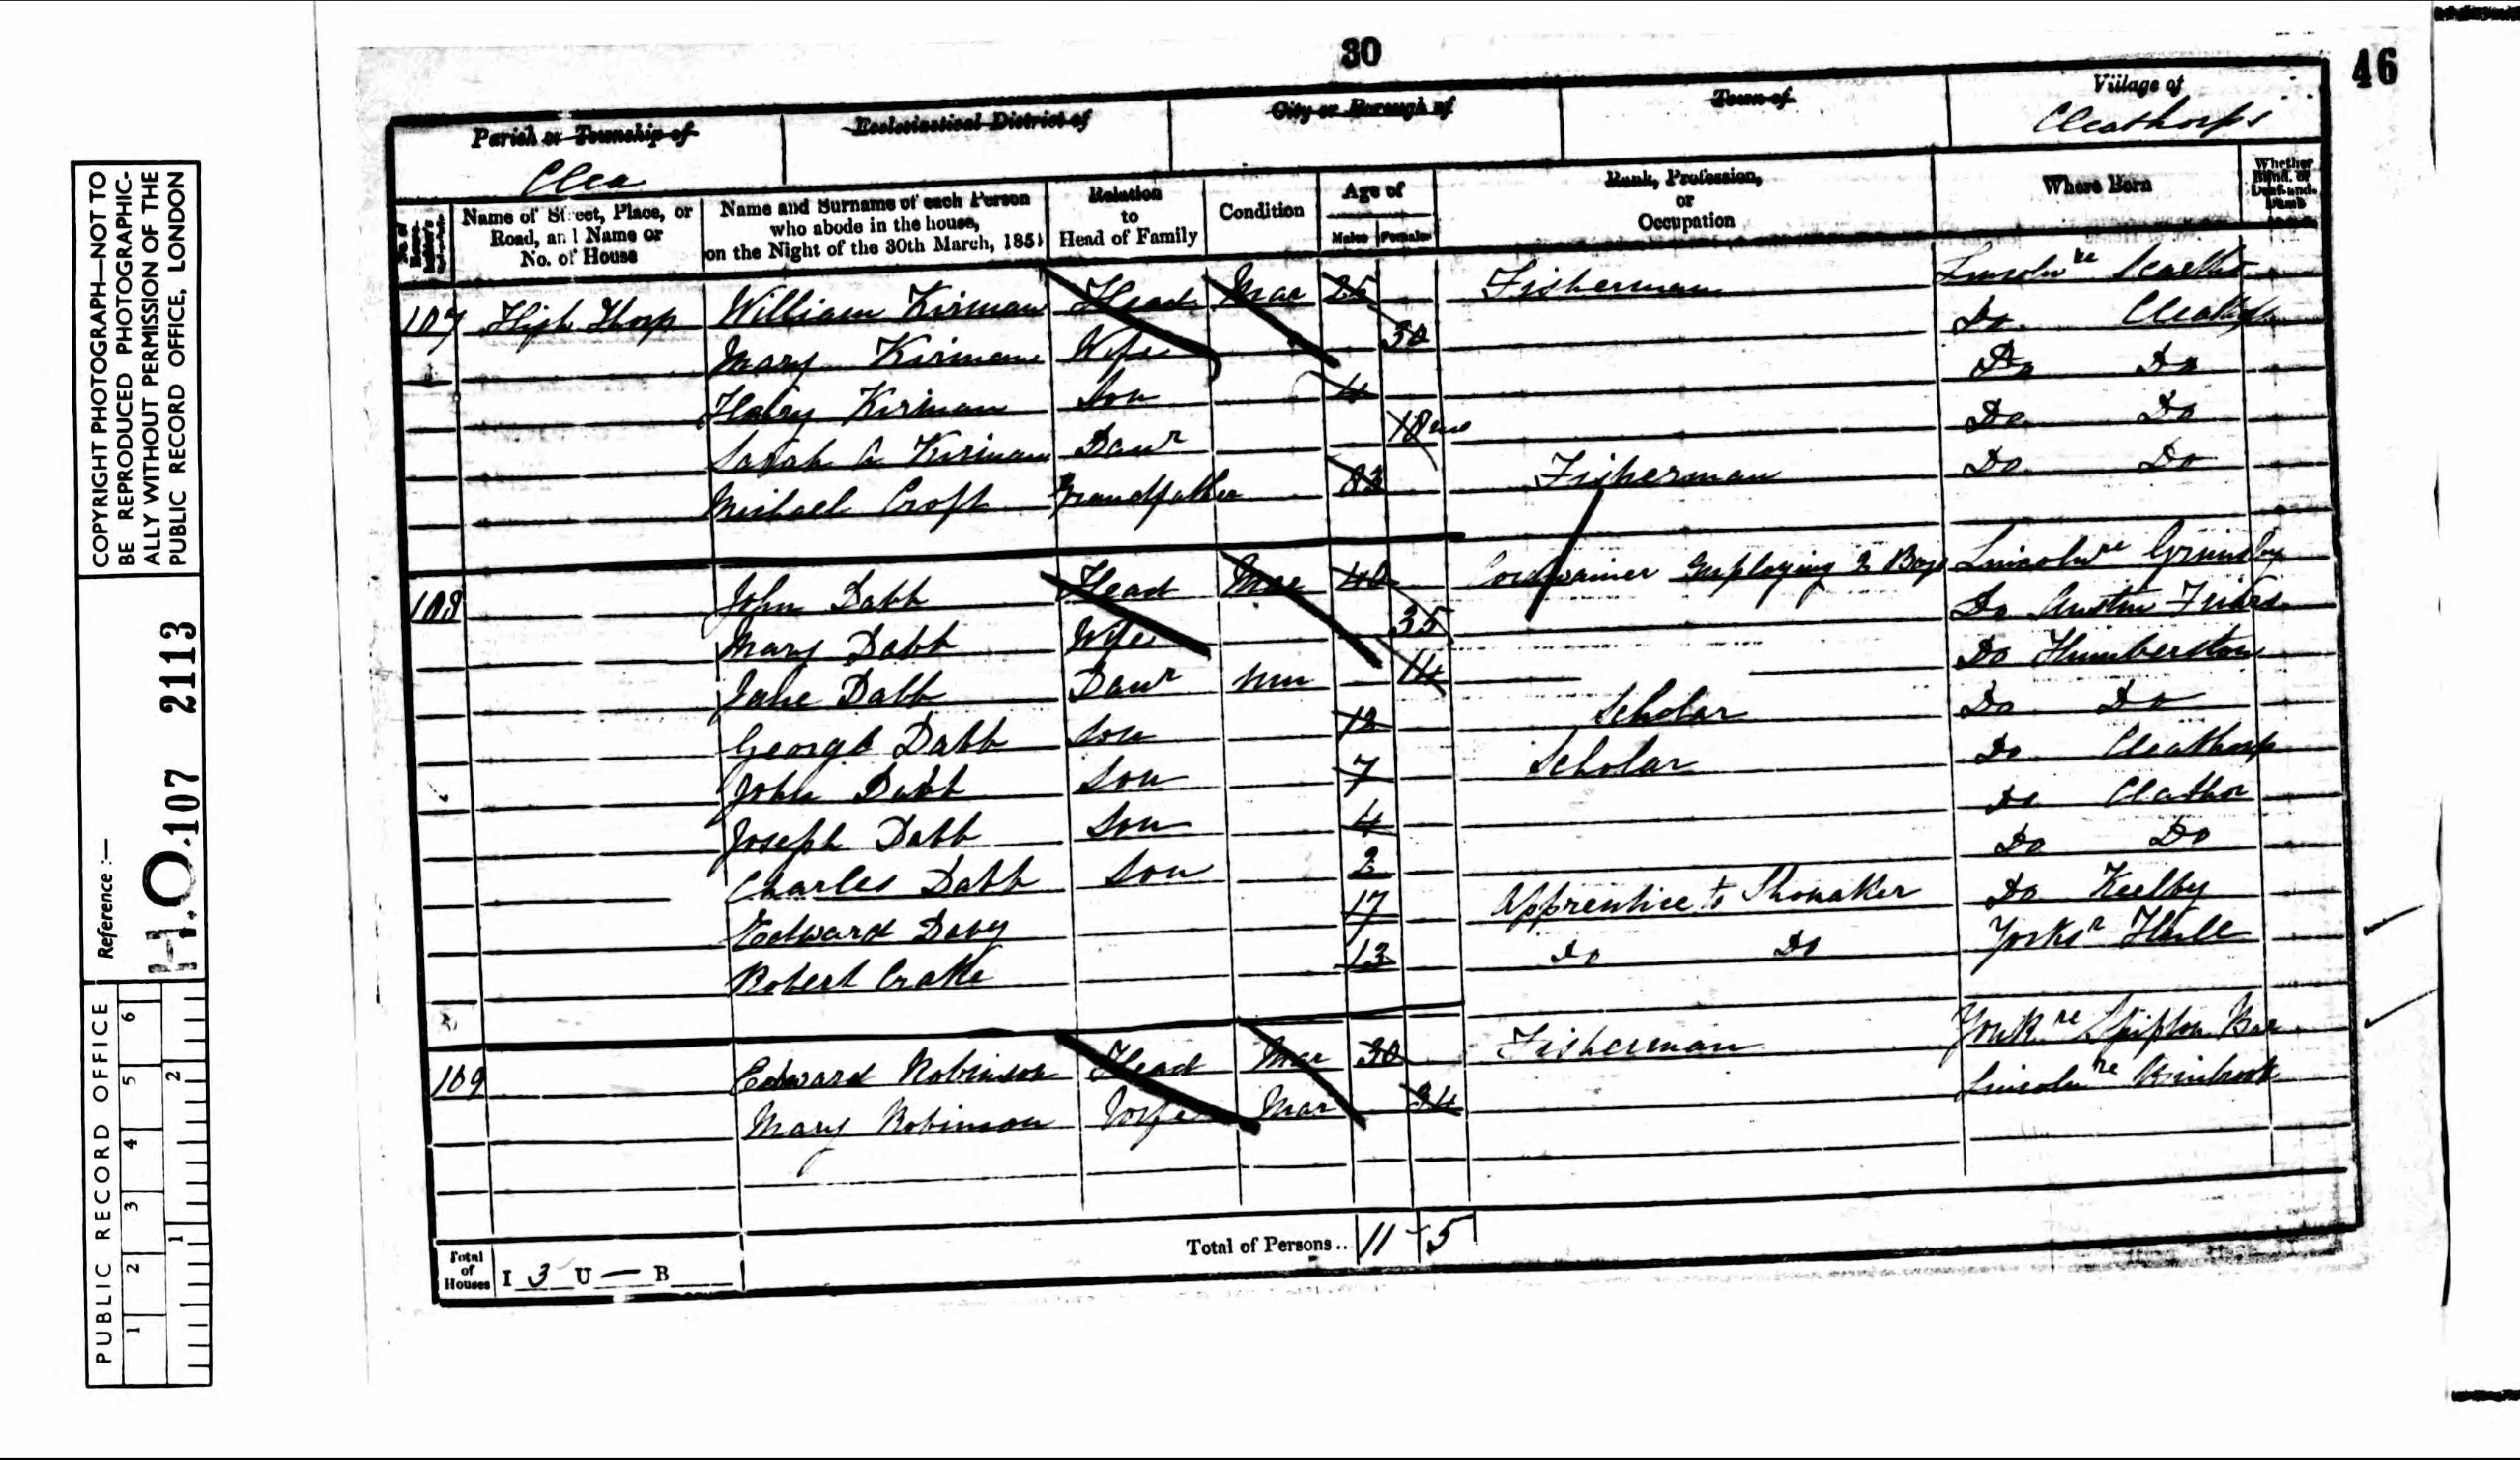 30
46
COPYRIGHT PHOTOGRAPH—NOT TO
BE REPRODUCED PHOTOGRAPHIC-
ALLY WITHOUT PERMISSION OF THE
PUBLIC RECORD OFFICE, LONDON
Reference :—
H.O. 107 2113
PUBLIC RECORD OFFICE
1 2 3 4 5 6
1 2
Parish or Township of
Clea
Ecclesiastical District of
City or Borough of
Town of
Village of
Cleathorps
Name of Street, Place, or Road, and Name or No. of House
Name and Surname of each Person who abode in the house, on the Night of the 30th March, 1851
Relation to Head of Family
Condition
Age of
Males Females
Rank, Profession, or Occupation
Where Born
Whether Blind, or Deaf-and-Dumb
107 High Thorp William Kirman Head Mar 25 Fisherman Lincolnre Scartho
Mary Kirman Wife 30 Do
Harry Kirman Son 4 Do Do
Sarah A Kirman Daur 18 mo Do Do
Michael Croft Grandfather 83 Fisherman Do Do
108 John Dabb Head Mar 40 Cordwainer Employing 2 Boys Lincolnre Grimsby
Mary Dabb Wife 35 Do Austin Friars
Jane Dabb Daur Um 14 Do Humberston
George Dabb Son 12 Scholar Do Do
John Dabb Son 7 Scholar Do Cleathorp
Joseph Dabb Son 4 Do Cleathor
Charles Dabb Son 2 Do Do
Edward Davy 17 Apprentice to Shomaker Do Keelby
Robert Crake 13 Do Do Yorksr Hull
109 Edward Robinson Head Mar 30 Fisherman Yorkre
Mary Robinson Wife Mar 34 Lincolnre Binbrook
Total of Houses I 3 U — B
Total of Persons.. 11 5